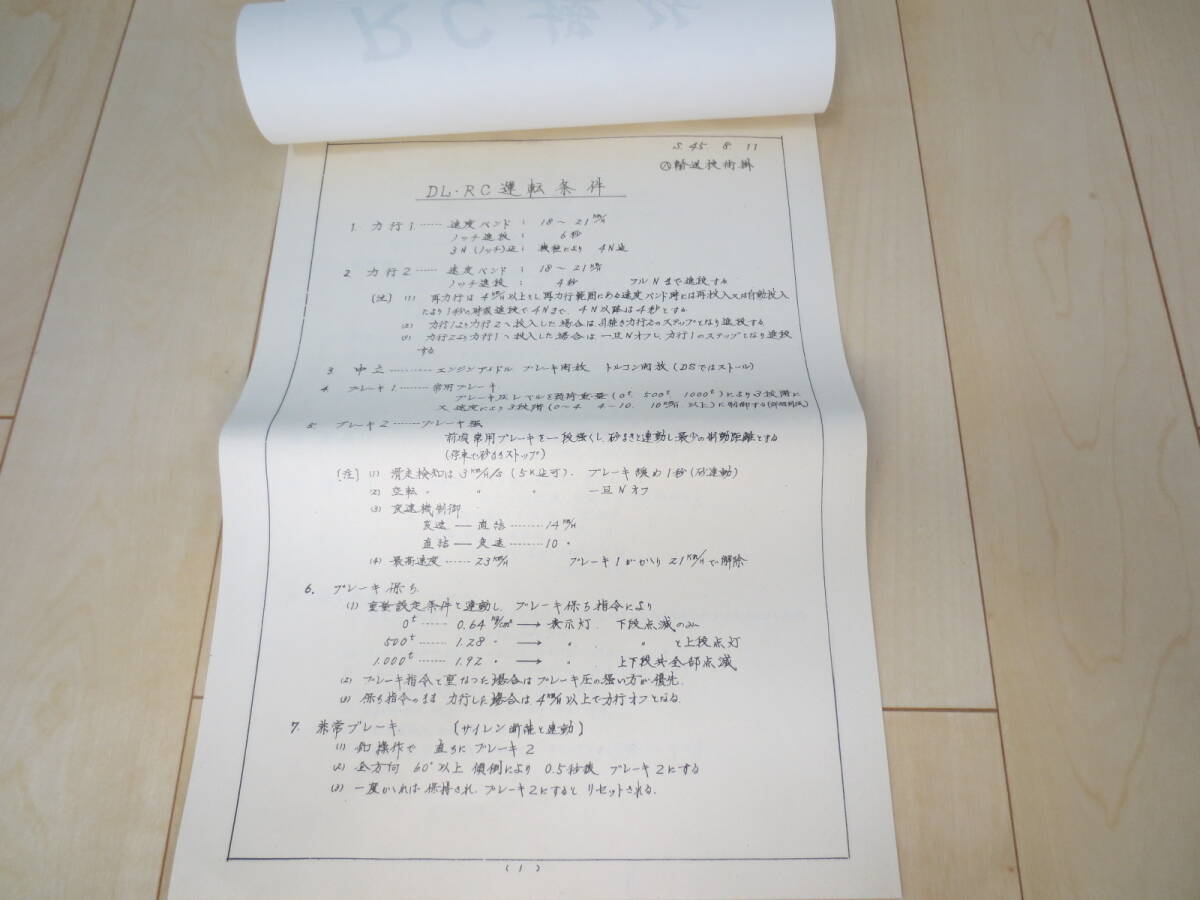 S. 45 8 11
輸送技術掛
DL・RC 運転条件
1. 力行1 …… 速度バンド : 18 ~ 21 KM/H
ノッチ進段 : 6秒
3N (ノッチ)迄 : 機種により 4N迄
2. 力行2 …… 速度バンド : 18 ~ 21 KM/H
ノッチ進段 : 4秒 フルNまで進段する
(注) (1) 再力行は 4 KM/H 以上とし再力行範囲にある速度バンド時には再投入又は自動投入
により1秒の時減進段で4Nまで. 4N以降は4秒とする
(2) 力行1より力行2へ投入した場合は引続き力行2のステップとなり進段する
(3) 力行2より力行1へ投入した場合は 一旦Nオフし、力行1のステップとなり進段
する
3 中立 ………… エンジンアイドル ブレーキ開放 トルコン開放 (DSではストール)
4. ブレーキ1 ……… 常用ブレーキ
ブレーキ圧レベルを荷重量 (0t, 500t, 1000t) により3段階に
又速度により3段階 (0~4 4~10. 10KM/H 以上) に制御する
5. ブレーキ2 ……… ブレーキ強
前項常用ブレーキを一段強くし、砂まきと連動し最少の制動距離とする
(停車で砂まきストップ)
〔注〕 (1) 滑走検知は 3 KM/H/S (5K迄可). ブレーキ緩め1秒 (砂連動)
(2) 空転 〃 〃 〃 一旦Nオフ
(3) 変速機制御
変速 ― 直結 ……… 14 KM/H
直結 ― 変速 ……… 10 〃
(4) 最高速度 …… 23 KM/H ブレーキ1がかかり 21 KM/H で解除
6. ブレーキ保ち
(1) 重量設定条件と連動し ブレーキ保ち指令により
0t …… 0.64 kg/cm² → 表示灯 下段点滅のみ
500t …… 1.28 〃 → 〃 〃 と上段点灯
1.000t …… 1.92 〃 → 〃 上下段共全部点滅
(2) ブレーキ指令と重なった場合はブレーキ圧の強い方が優先.
(3) 保ち指令のまま 力行した場合は 4KM/H以上で力行オフとなる
7. 非常ブレーキ 〔サイレン断続と連動〕
(1) 釦操作で 直ちに ブレーキ2
(2) 全方向 60°以上 傾倒により 0.5秒後 ブレーキ2にする
(3) 一度かかれば保持され、ブレーキ2にするとリセットされる.
(1)